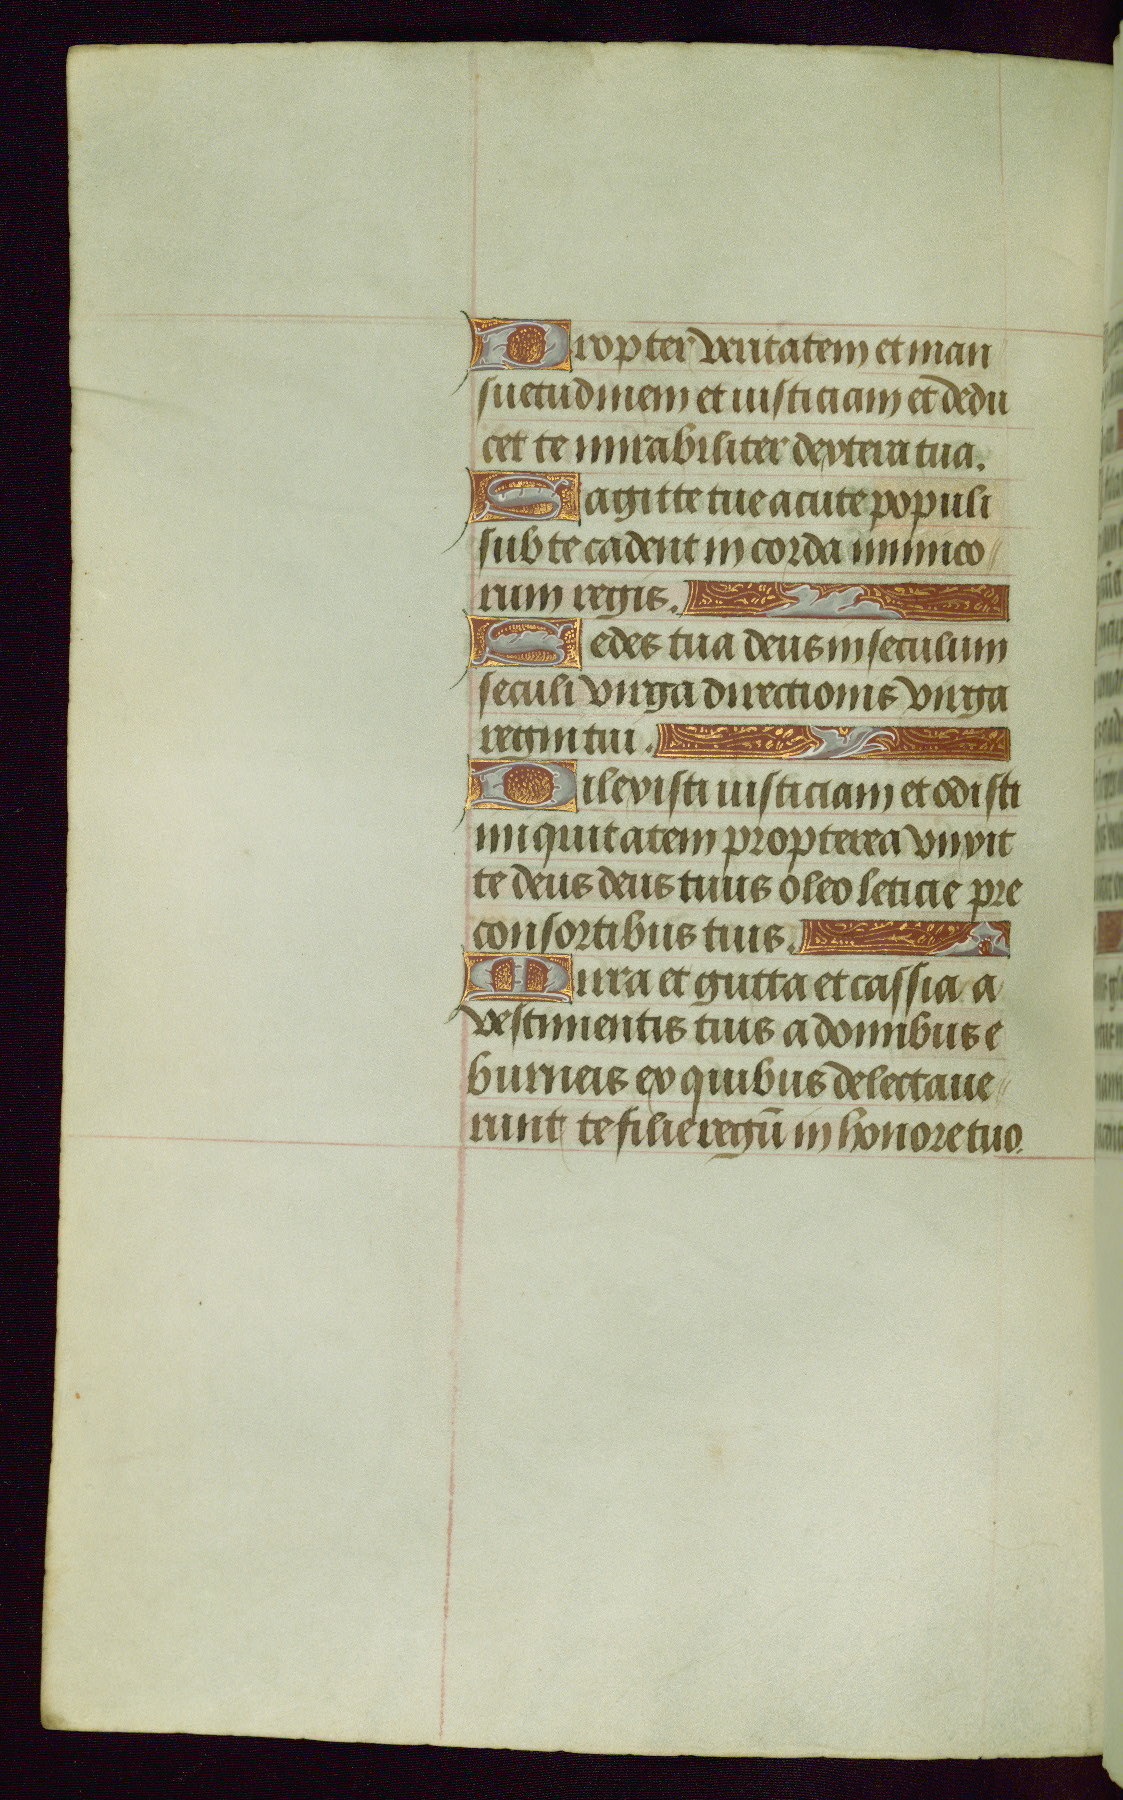 Propter veritatem et man
suetudinem et iusticiam et dedu
cet te mirabiliter dextera tua.
Sagitte tue acute populi
sub te cadent in corda inimico
rum regis.
Sedes tua deus in seculum
seculi virga directionis virga
regni tui.
Dilexisti iusticiam et odisti
iniquitatem propterea vnxit
te deus deus tuus oleo leticie pre
consortibus tuis.
Mirra et gutta et cassia a
vestimentis tuis a domibus e
burneis ex quibus delectaue
runt te filie regū in honore tuo.